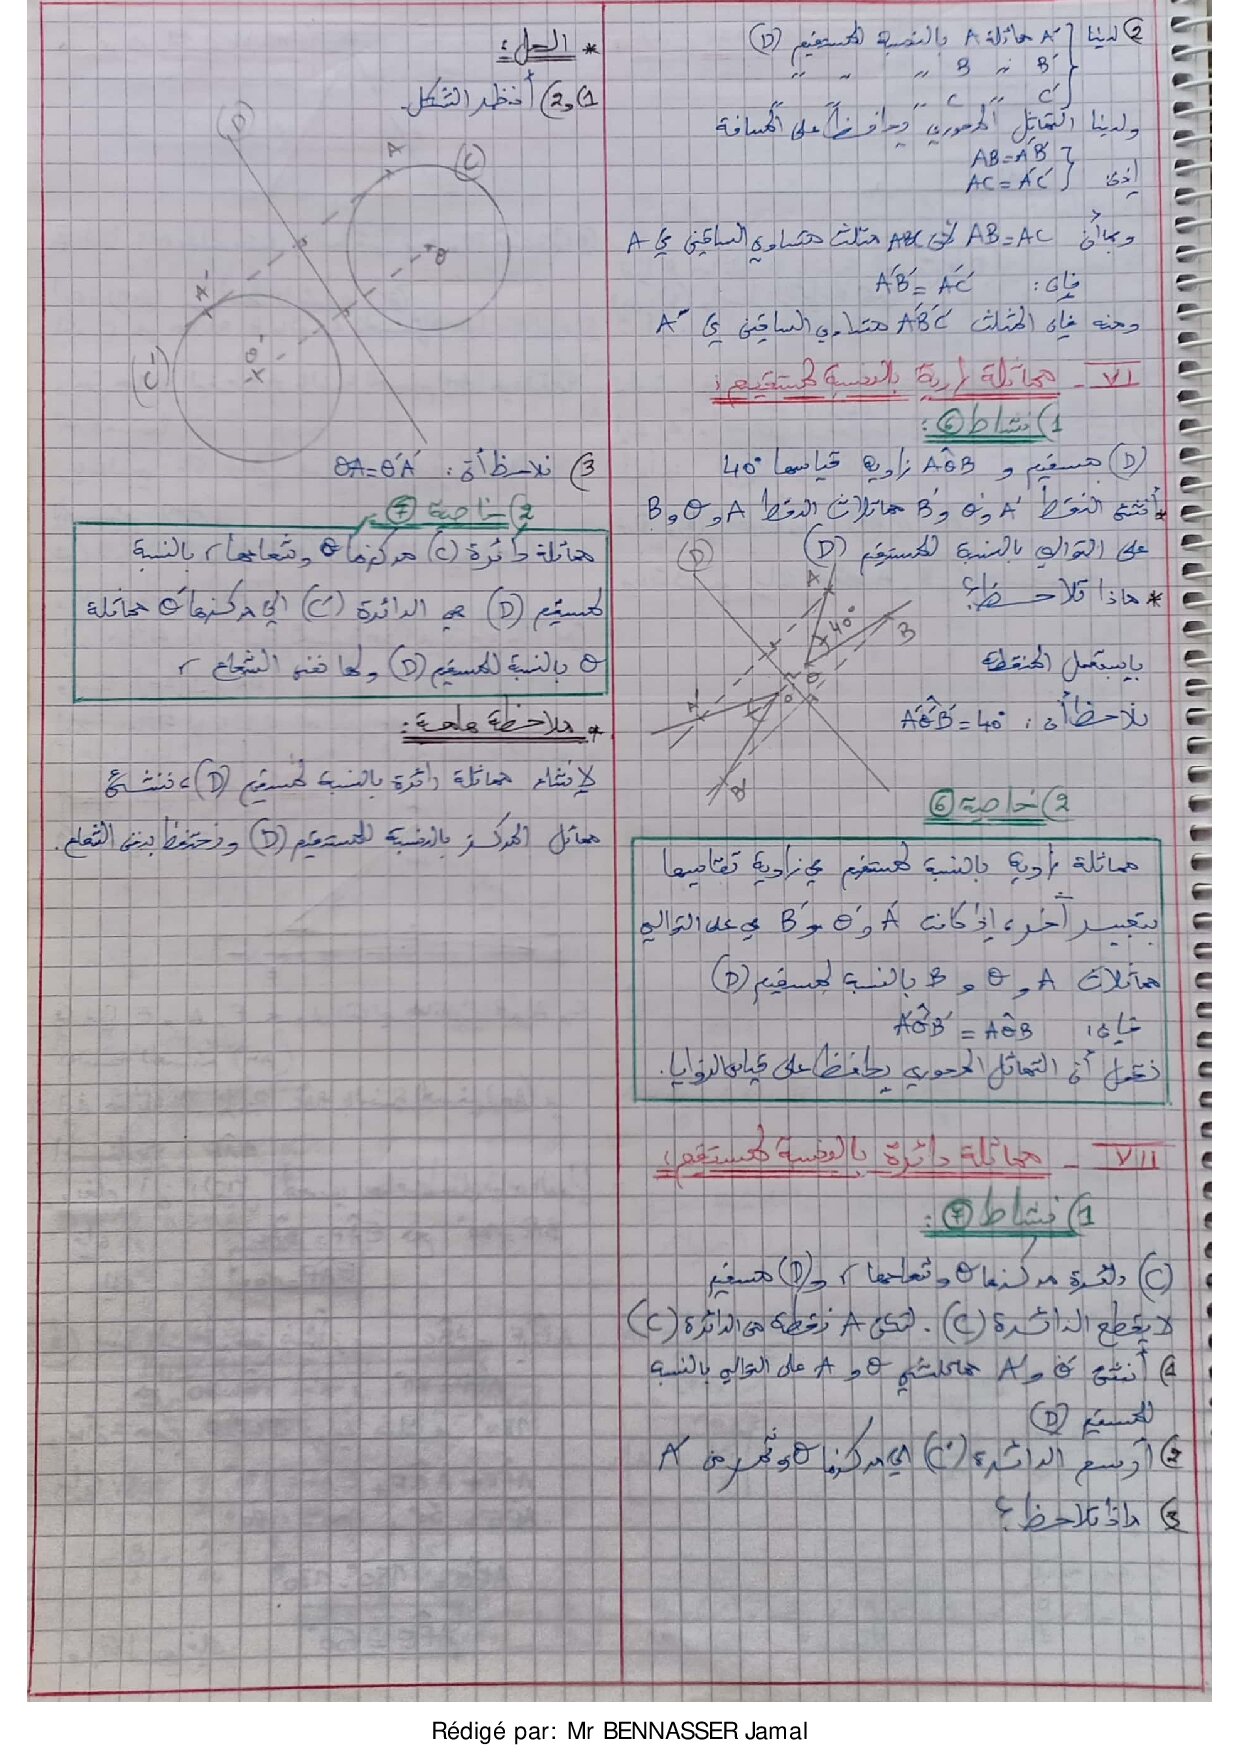 ② لدينا { A' مماثلة A بالنسبة للمستقيم (D)
B' " B " " "
C' " C " " "
ولدينا التماثل المحوري يحافظ على المسافة
إذن { AB=A'B'
AC=A'C'
وبما أن AB=AC لأن ABC مثلث متساوي الساقين في A
فإن: A'B'=A'C'
ومنه فإن المثلث A'B'C' متساوي الساقين في A'
VI - مماثلة زاوية بالنسبة لمستقيم:
1) نشاط ⑥:
(D) مستقيم و AÔB زاوية قياسها 40°
* أنشئ النقط A' و O' و B' مماثلات النقط A و O و B
على التوالي بالنسبة للمستقيم (D)
* ماذا تلاحظ؟
(D)
A
40°
B
O
A'
O'
B'
باستعمال المنقلة
نلاحظ أن: A'Ô'B'=40°
2) خاصية ⑥
مماثلة زاوية بالنسبة لمستقيم هي زاوية تقايسها
بتعبير آخر، إذا كانت A' و O' و B' هي على التوالي
مماثلات A و O و B بالنسبة لمستقيم (D)
فإن: A'Ô'B' = AÔB
نقول أن التماثل المحوري يحافظ على قياس الزوايا.
VII - مماثلة دائرة بالنسبة لمستقيم:
1) نشاط ⑦:
(C) دائرة مركزها O وشعاعها r و (D) مستقيم
لا يقطع الدائرة (C). لتكن A نقطة من الدائرة (C)
1) أنشئ O' و A' مماثلتي O و A على التوالي بالنسبة
للمستقيم (D)
2) أرسم الدائرة (C') التي مركزها O' وتمر من A'
3) ماذا تلاحظ؟
* الحل:
1) و 2) أنظر الشكل.
(D)
A
(C)
O
A'
O'
(C')
3) نلاحظ أن: OA=O'A'
2) خاصية ⑦
مماثلة دائرة (C) مركزها O وشعاعها r بالنسبة
لمستقيم (D) هي الدائرة (C') التي مركزها O' مماثلة
O بالنسبة للمستقيم (D) ولها نفس الشعاع r
* ملاحظة هامة:
لإنشاء مماثلة دائرة بالنسبة لمستقيم (D)، ننشئ
مماثل المركز بالنسبة للمستقيم (D) ونحتفظ بنفس الشعاع.
Rédigé par: Mr BENNASSER Jamal